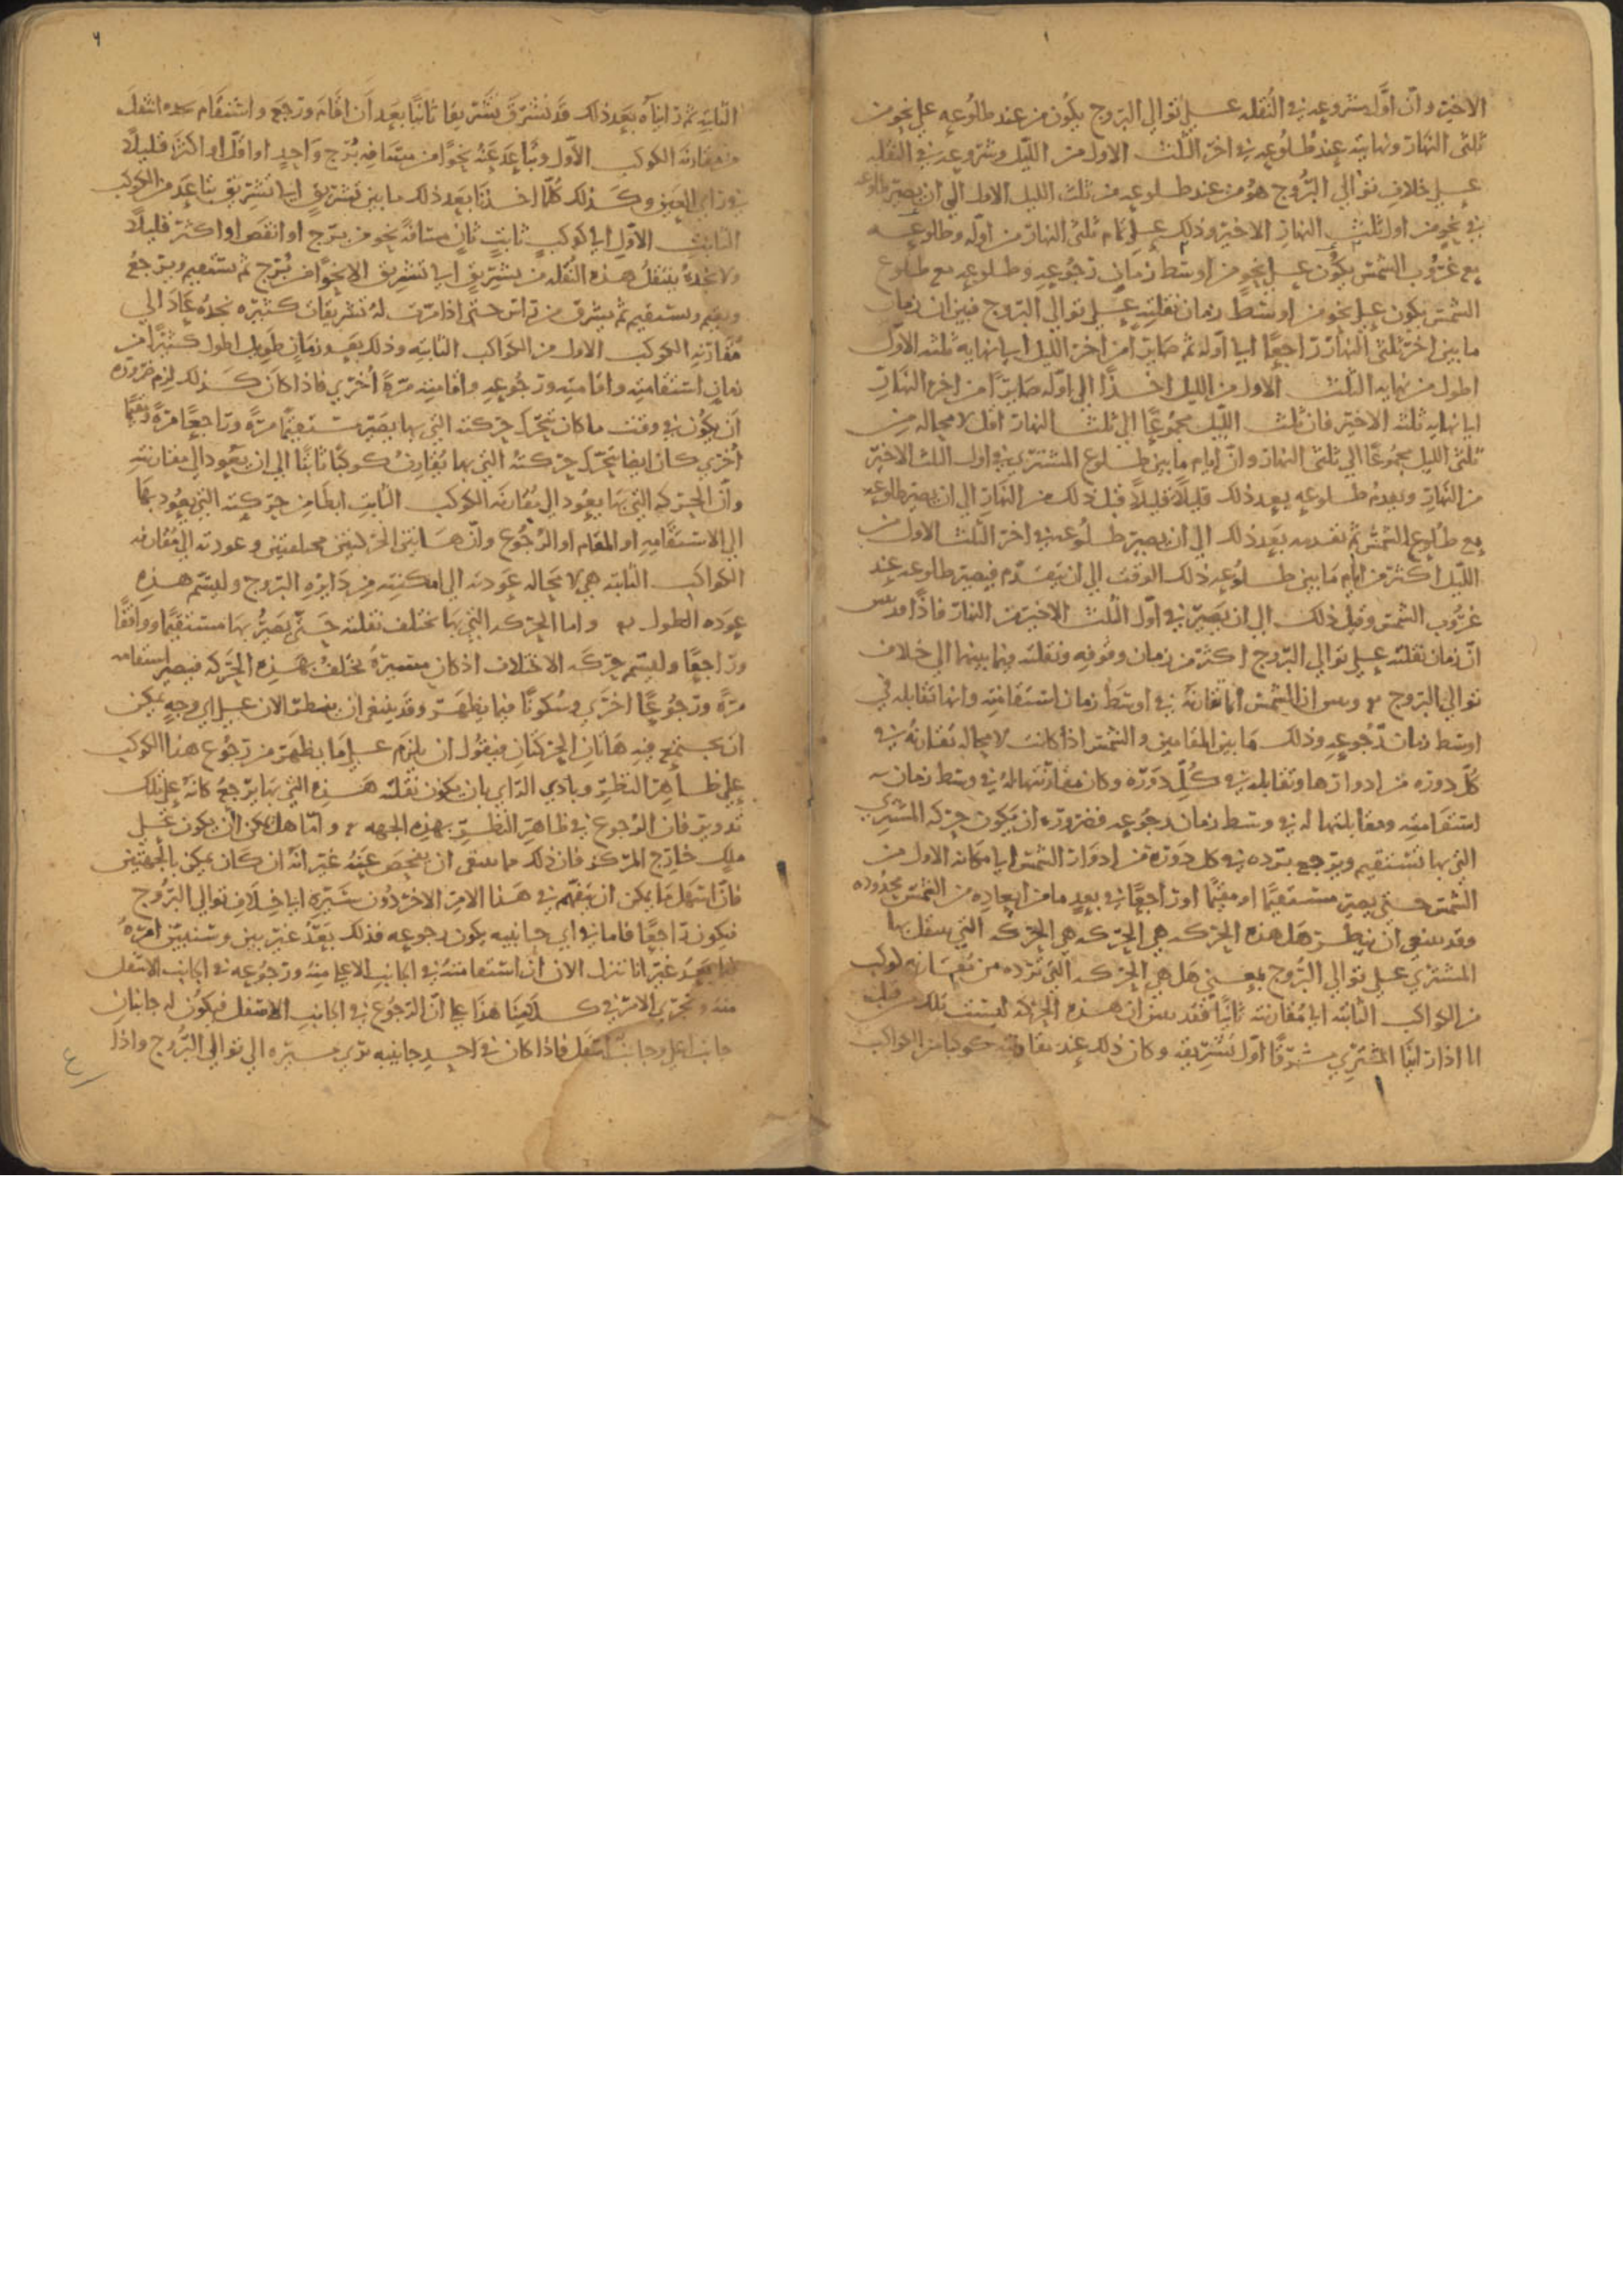 الاخير وانّ اوّل شروعه في النُقله على توالي البروج يكون من عند طلوعه على نحو من
ثلثى النهار ونهايته عند طُلوعه في اخر الثلث الاول من الليل وشروعه في النقله
على خلاف توالي البُروج هو من عند طلوعه من ثلث الليل الاول الى ان يصير طلوعه
في نحو من اول ثلث النهار الاخير وذلك على تمام ثلثى النهار من اوّله وطلوعه
مع غروب الشمس يكون على نحو من اوسط زمان رجُوعه وطلوعه مع طلوع
الشمس يكون على نحو من اوسط زمان نقلته على توالي البروج فبين ان زمان
ما بين اخر ثلثى النهار راجعًا الى اوله ثم صايرًا من اخر الليل الى نهايه ثلثه الاوّل
اطول من نهايه الثلث الاول من الليل اخذًا الى اوله صايرًا من اخر النهار
الى نهايه ثلثه الاخير فان ثلث الليل مجموعًا الى ثلث النهار اقل لا محاله من
ثلثى الليل مجموعًا الى ثلثى النهار وانّ ايام ما بين طلوع المشتري في اول الثلث الاخير
من النهار وتقدم طلوعه بعد ذلك قليلاً قليلاً قبل ذلك من النهار الى ان يصير طلوعه
مع طلوع الشمس ثم تقدمه بعد ذلك الى ان يصير طلوعه في اخر الثلث الاول من
الليل اكثر من ايام ما بين طلوعه ذلك الوقت الى ان يتقدّم فيصير طلوعه عند
غروب الشمس وقبل ذلك الى ان يصير في اوّل الثلث الاخير من النهار فاذًا قد تبين
انّ زمان نقلته على توالي البروج اكثر من زمان وقوفه ونقلته فيما بينهما الى خلاف
توالي البروج وبين ان الشمس انما تقارنه في اوسط زمان استقامته وانها تقابله في
اوسط زمان رجُوعه وذلك ما بين المقامين والشمس اذا كانت لا محاله تقارنه في
كلّ دوره من ادوارها وتقابله في كلّ دَوره وكان مقارنتها له في وسط زمان
استقامته ومقابلتها له في وسط زمان رجُوعه فضروره ان يكون حركه المشتري
التي بها تستقيم ويرجع يرده في كل دَوره من ادوار الشمس الى مكانه الاول من
الشمس حتى يصير مستقيمًا او مقيمًا او راجعًا في بعد ما من ابعاده من الشمس محدُوده
وقد ينبغي ان ينظر هل هذه الحركه هي الحركه هي الحركه التي ينتقل بها
المشتري على توالي البُروج بمعنى هل هي الحركه التي ترده من مقارنه كوكب
من الكواكب الثابته الى مُقارنته ثانيًا فقد يتبين ان هذه الحركه ليست تلك من قبل
انا اذا راينا المشتري مشرّقًا اوّل تشريقه وكان ذلك عند مقارنته كوكبا من الكواكب
الثابته ثم رايناه بعد ذلك قد يُشرق تشريقا ثانيًا بعد ان اقام ورجع واستقام انتقل
من مقارنة الكوكب الاول وتباعد عنه نحوًا من مسافه بُرج واحدٍ او اقل او اكثر قليلاً
في راي العين وكذلك كُلّما اخذنا بعد ذلك ما بين تشريقٍ الى تشريق تباعد من الكوكب
الثابت الاوّل الى كوكبٍ ثابتٍ ثانٍ مسافه نحو من برج او انقص او اكثر قليلاً
ولا نجدهُ ينتقل هذه النُقله من تشريقٍ الى تشريق الا نحوًا من بُرج ثم يستقيم ويرجع
ويقيم ويستقيم ثم يشرق من راس حتى اذا مرت له تشريقات كثيره نجدُه عاد الى
مُقارنه الكوكب الاول من الكواكب الثابته وذلك بعد زمان طويل اطول كثيرًا من
زمان استقامته واقامته ورجُوعه واقامته مرّة أخري فاذا كان كذلك لزم ضروره
ان يكون في وقت ما كان يتحرك حركته التي بها يصير مستقيمًا مرّة وراجعًا مرّة ومقيمًا
أخري كان ايضا يتحرك حركته التي بها يُقارن كوكبًا ثابتًا الى ان يعود الى مقارنته
وانّ الحركه التي بها يعود الى مُقارنه الكوكب الثابت ابطا من حركته التي يعود بها
الى الاستقامه او المقام او الرجُوع وانّ هاتين الحركتين مختلفتين وعودته الى مُقارنه
الكواكب الثابته هي لا محاله عودته الى امكنته من دايره البروج وليسم هذه
عوده الطول واما الحركه التي بها تختلف نقلته حتى يصير بها مستقيمًا وواقفًا
وراجعًا وليسم حركه الاختلاف اذ كان مسيره يختلف بهذه الحركه فيصير استقامه
مرّة ورجُوعًا اخرى وسُكونًا فيما يظهر وقد ينبغي ان ينظر الان على اي وجه يمكن
ان يجتمع فيه هاتان الحركتان فيقول ان يلزم على ما يظهر من رجُوع هذا الكوكب
على ظاهر النظر وبادي الراي بان يكون نقلته هذه التي بها يرجع كانه على فلك
تدوير فان الرجوع في ظاهر النظر بهذه الجهه وامّا هل يمكن ان يكون على
فلك خارج المركز فان ذلك مما ينبغي ان يفحص عنه غير انه ان كان يمكن بالجهتين
فانّ اسهل ما يمكن ان يتفهّم في هذا الامر الاخر دون سيره الى خلاف توالي البُروج
فيكون راجعًا فاما في اي جانبيه يكون رجوعه فذلك بعد غير بين وسنبيّن امره
فيما بعد غير انا ننزل الان ان استقامته في الجانب الاعلى منه ورجُوعه في الجانب الاسفل
منه ونجري الامر في كلامنا هذا على انّ الرجُوع في الجانب الاسفل فيكون له جانبان
جانب اعلى وجانب اسفل فاذا كان في احد جانبيه يري مسيره الى توالي البُروج واذا